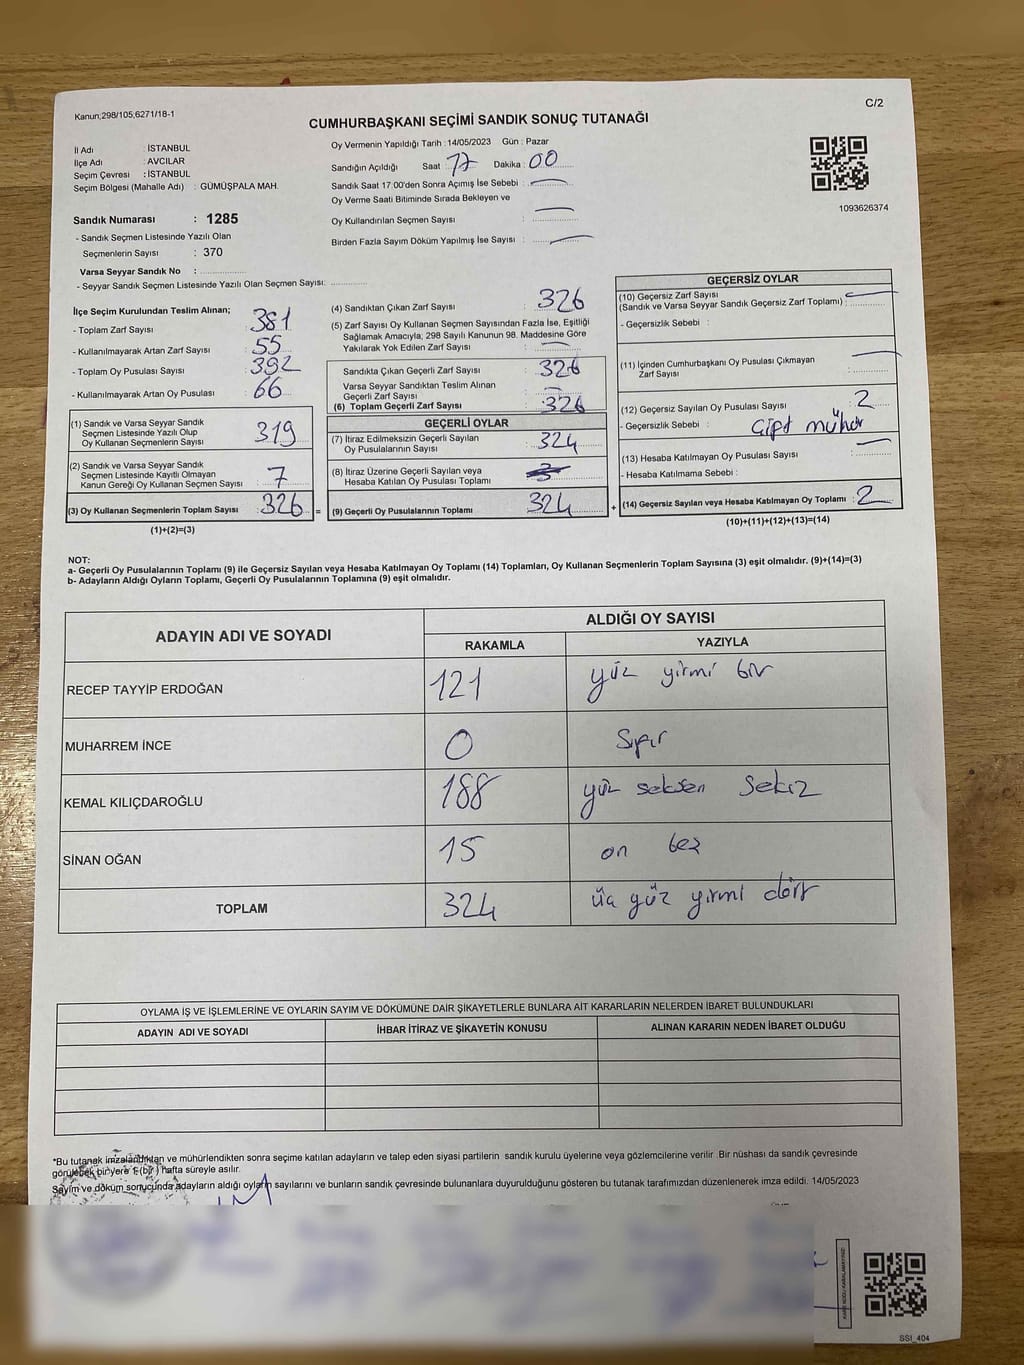 Kanun;298/105;6271/18-1
C/2
CUMHURBAŞKANI SEÇİMİ SANDIK SONUÇ TUTANAĞI
İl Adı : İSTANBUL
İlçe Adı : AVCILAR
Seçim Çevresi : İSTANBUL
Seçim Bölgesi (Mahalle Adı) : GÜMÜŞPALA MAH.
Sandık Numarası : 1285
- Sandık Seçmen Listesinde Yazılı Olan
Seçmenlerin Sayısı : 370
Varsa Seyyar Sandık No :
- Seyyar Sandık Seçmen Listesinde Yazılı Olan Seçmen Sayısı:
Oy Vermenin Yapıldığı Tarih : 14/05/2023 Gün : Pazar
Sandığın Açıldığı Saat : 17 Dakika : 00
Sandık Saat 17:00'den Sonra Açımış İse Sebebi :
Oy Verme Saati Bitiminde Sırada Bekleyen ve
Oy Kullandırılan Seçmen Sayısı :
Birden Fazla Sayım Döküm Yapılmış İse Sayısı :
1093626374
İlçe Seçim Kurulundan Teslim Alınan;
- Toplam Zarf Sayısı : 381
- Kullanılmayarak Artan Zarf Sayısı : 55
- Toplam Oy Pusulası Sayısı : 392
- Kullanılmayarak Artan Oy Pusulası : 66
(1) Sandık ve Varsa Seyyar Sandık
Seçmen Listesinde Yazılı Olup
Oy Kullanan Seçmenlerin Sayısı : 319
(2) Sandık ve Varsa Seyyar Sandık
Seçmen Listesinde Kayıtlı Olmayan
Kanun Gereği Oy Kullanan Seçmen Sayısı : 7
(3) Oy Kullanan Seçmenlerin Toplam Sayısı : 326 =
(1)+(2)=(3)
(4) Sandıktan Çıkan Zarf Sayısı : 326
(5) Zarf Sayısı Oy Kullanan Seçmen Sayısından Fazla İse, Eşitliği
Sağlamak Amacıyla, 298 Sayılı Kanunun 98. Maddesine Göre
Yakılarak Yok Edilen Zarf Sayısı :
Sandıkta Çıkan Geçerli Zarf Sayısı : 326
Varsa Seyyar Sandıktan Teslim Alınan
Geçerli Zarf Sayısı :
(6) Toplam Geçerli Zarf Sayısı : 326
GEÇERLİ OYLAR
(7) İtiraz Edilmeksizin Geçerli Sayılan
Oy Pusulasının Sayısı : 324
(8) İtiraz Üzerine Geçerli Sayılan veya
Hesaba Katılan Oy Pusulası Toplamı :
(9) Geçerli Oy Pusulalarının Toplamı : 324 +
GEÇERSİZ OYLAR
(10) Geçersiz Zarf Sayısı
(Sandık ve Varsa Seyyar Sandık Geçersiz Zarf Toplamı) :
- Geçersizlik Sebebi :
(11) İçinden Cumhurbaşkanı Oy Pusulası Çıkmayan
Zarf Sayısı :
(12) Geçersiz Sayılan Oy Pusulası Sayısı : 2
- Geçersizlik Sebebi : Çift mühür
(13) Hesaba Katılmayan Oy Pusulası Sayısı :
- Hesaba Katılmama Sebebi :
(14) Geçersiz Sayılan veya Hesaba Katılmayan Oy Toplamı : 2
(10)+(11)+(12)+(13)=(14)
NOT:
a- Geçerli Oy Pusulalarının Toplamı (9) ile Geçersiz Sayılan veya Hesaba Katılmayan Oy Toplamı (14) Toplamları, Oy Kullanan Seçmenlerin Toplam Sayısına (3) eşit olmalıdır. (9)+(14)=(3)
b- Adayların Aldığı Oyların Toplamı, Geçerli Oy Pusulalarının Toplamına (9) eşit olmalıdır.
ADAYIN ADI VE SOYADI ALDIĞI OY SAYISI
RAKAMLA YAZIYLA
RECEP TAYYİP ERDOĞAN 121 yüz yirmi bir
MUHARREM İNCE 0 Sıfır
KEMAL KILIÇDAROĞLU 188 yüz seksen sekiz
SİNAN OĞAN 15 on beş
TOPLAM 324 üç yüz yirmi dört
OYLAMA İŞ VE İŞLEMLERİNE VE OYLARIN SAYIM VE DÖKÜMÜNE DAİR ŞİKAYETLERLE BUNLARA AİT KARARLARIN NELERDEN İBARET BULUNDUKLARI
ADAYIN ADI VE SOYADI İHBAR İTİRAZ VE ŞİKAYETİN KONUSU ALINAN KARARIN NEDEN İBARET OLDUĞU
*Bu tutanak imzalandıktan ve mühürlendikten sonra seçime katılan adayların ve talep eden siyasi partilerin sandık kurulu üyelerine veya gözlemcilerine verilir .Bir nüshası da sandık çevresinde
görülebek bir yere 1 (bir) hafta süreyle asılır.
Sayım ve döküm sonucunda adayların aldığı oyların sayılarını ve bunların sandık çevresinde bulunanlara duyurulduğunu gösteren bu tutanak tarafımızdan düzenlenerek imza edildi. 14/05/2023
SSI_404